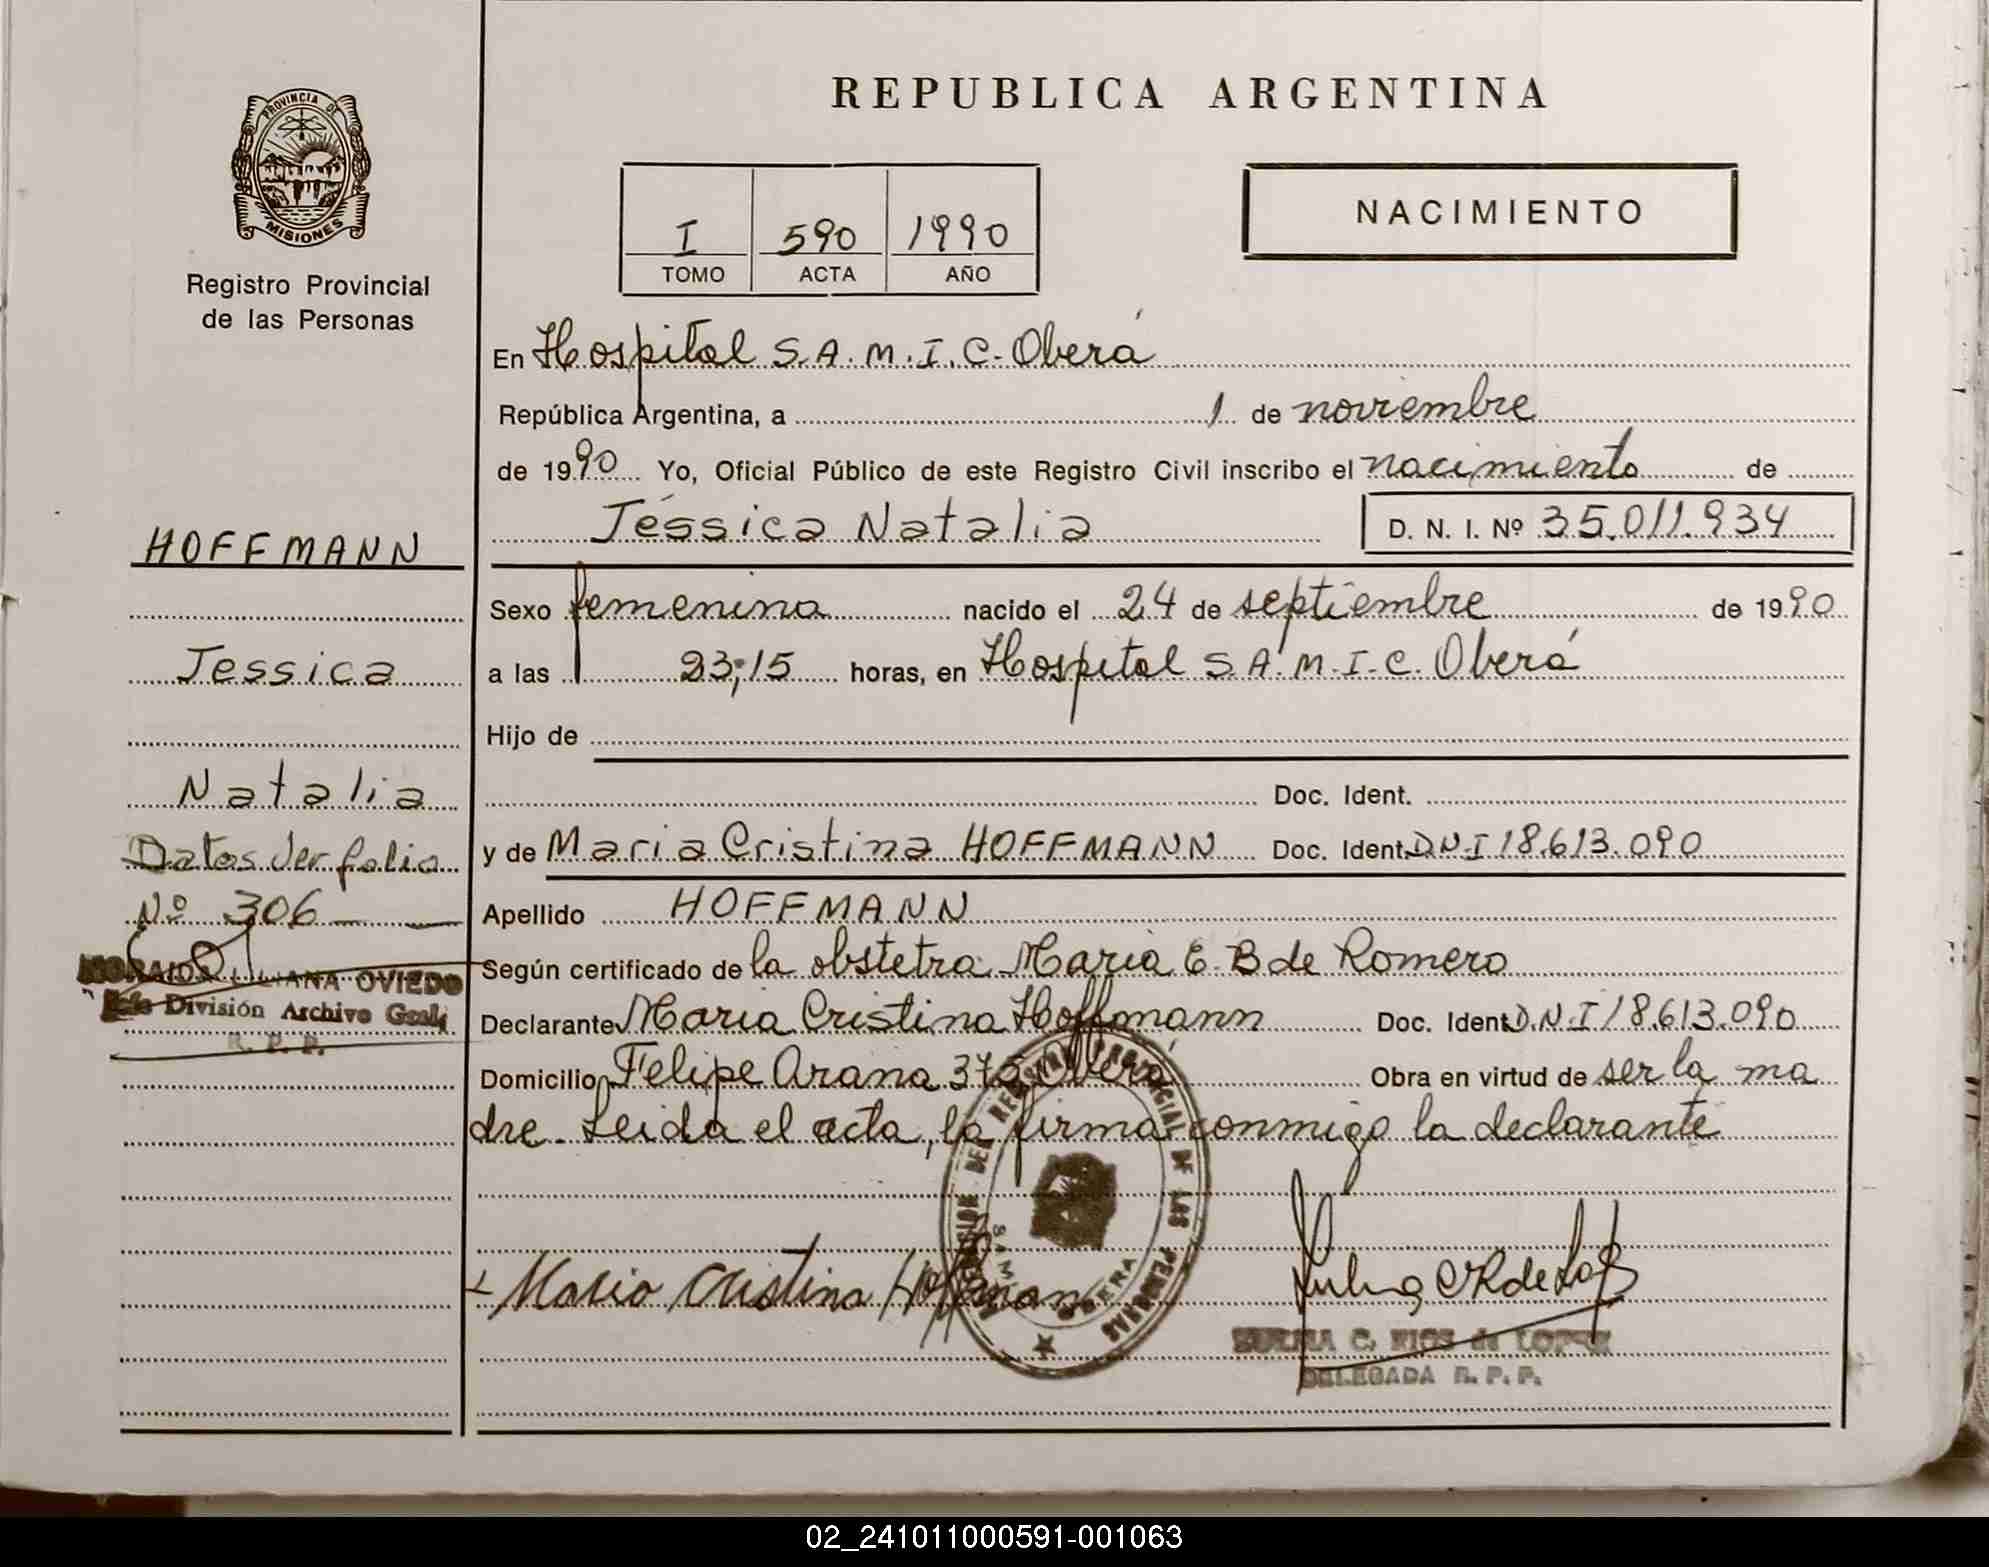 PROVINCIA DE
MISIONES
Registro Provincial
de las Personas
HOFFMANN
Jessica
Natalia
Datos Ver folio
Nº 306
LILIANA OVIEDO
Jefe División Archivo Gral.
R. P. P.
REPUBLICA ARGENTINA
I 590 1990
TOMO ACTA AÑO
NACIMIENTO
En Hospital S.A.M.I.C. Oberá
República Argentina, a 1 de noviembre
de 1990 Yo, Oficial Público de este Registro Civil inscribo el nacimiento de
Jéssica Natalia D. N. I. Nº 35.011.934
Sexo femenina nacido el 24 de septiembre de 1990
a las 23;15 horas, en Hospital S.A.M.I.C. Oberá
Hijo de
Doc. Ident.
y de Maria Cristina HOFFMANN Doc. Ident. D.N.I 18.613.090
Apellido HOFFMANN
Según certificado de la obstetra Maria E. B de Romero
Declarante Maria Cristina Hoffmann Doc. Ident. D.N.I 18.613.090
Domicilio Felipe Arana 375 Oberá Obra en virtud de ser la ma
dre. Leida el acta, la firma conmigo la declarante
Maria Cristina Hoffmann
DEL REGISTRO PROVINCIAL DE LAS PERSONAS
OBERA
C. RIOS de LOPEZ
DELEGADA R. P. P.
02_241011000591-001063